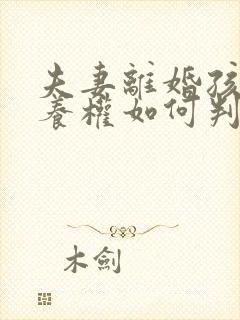 夫妻離婚孩
養權如何判
木劍